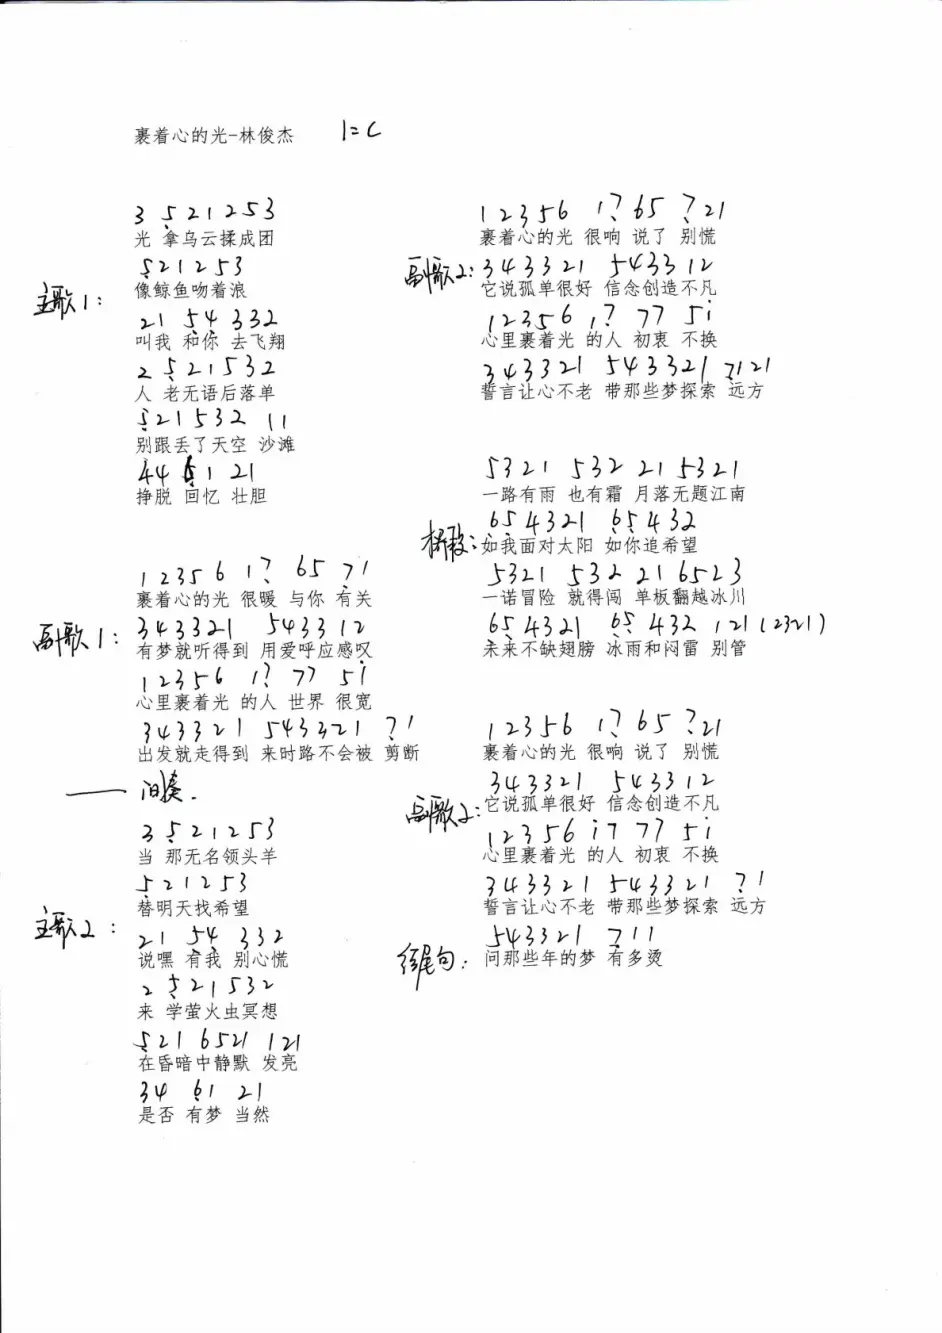 裹着心的光-林俊杰 1=C
3 5 2 1 2 5 3
光 拿乌云揉成团
5 2 1 2 5 3
像鲸鱼吻着浪
主歌1:
2 1 5 4 3 3 2
叫我 和你 去飞翔
2 5 2 1 5 3 2
人 老无语后落单
5 2 1 5 3 2 1 1
别跟丢了天空 沙滩
4 4 5 1 2 1
挣脱 回忆 壮胆
1 2 3 5 6 1 7 6 5 7 1
裹着心的光 很暖 与你 有关
副歌1:
3 4 3 3 2 1 5 4 3 3 1 2
有梦就听得到 用爱呼应感叹
1 2 3 5 6 1 7 7 7 5 i
心里裹着光 的人 世界 很宽
3 4 3 3 2 1 5 4 3 3 2 1 7 1
出发就走得到 来时路不会被 剪断
—— 间奏.
3 5 2 1 2 5 3
当 那无名领头羊
5 2 1 2 5 3
替明天找希望
主歌2:
2 1 5 4 3 3 2
说嘿 有我 别心慌
2 5 2 1 5 3 2
来 学萤火虫冥想
5 2 1 6 5 2 1 1 2 1
在昏暗中静默 发亮
3 4 6 1 2 1
是否 有梦 当然
1 2 3 5 6 1 7 6 5 7 2 1
裹着心的光 很响 说了 别慌
副歌2:
3 4 3 3 2 1 5 4 3 3 1 2
它说孤单很好 信念创造不凡
1 2 3 5 6 1 7 7 7 5 i
心里裹着光 的人 初衷 不换
3 4 3 3 2 1 5 4 3 3 2 1 7 1 2 1
誓言让心不老 带那些梦探索 远方
5 3 2 1 5 3 2 2 1 5 3 2 1
一路有雨 也有霜 月落无题江南
桥段:
6 5 4 3 2 1 6 5 4 3 2
如我面对太阳 如你追希望
5 3 2 1 5 3 2 2 1 6 5 2 3
一诺冒险 就得闯 单板翻越冰川
6 5 4 3 2 1 6 5 4 3 2 1 2 1 (2 3 2 1)
未来不缺翅膀 冰雨和闷雷 别管
1 2 3 5 6 1 7 6 5 7 2 1
裹着心的光 很响 说了 别慌
副歌2:
3 4 3 3 2 1 5 4 3 3 1 2
它说孤单很好 信念创造不凡
1 2 3 5 6 i 7 7 7 5 i
心里裹着光 的人 初衷 不换
3 4 3 3 2 1 5 4 3 3 2 1 7 1
誓言让心不老 带那些梦探索 远方
结尾句:
5 4 3 3 2 1 7 1 1
问那些年的梦 有多烫